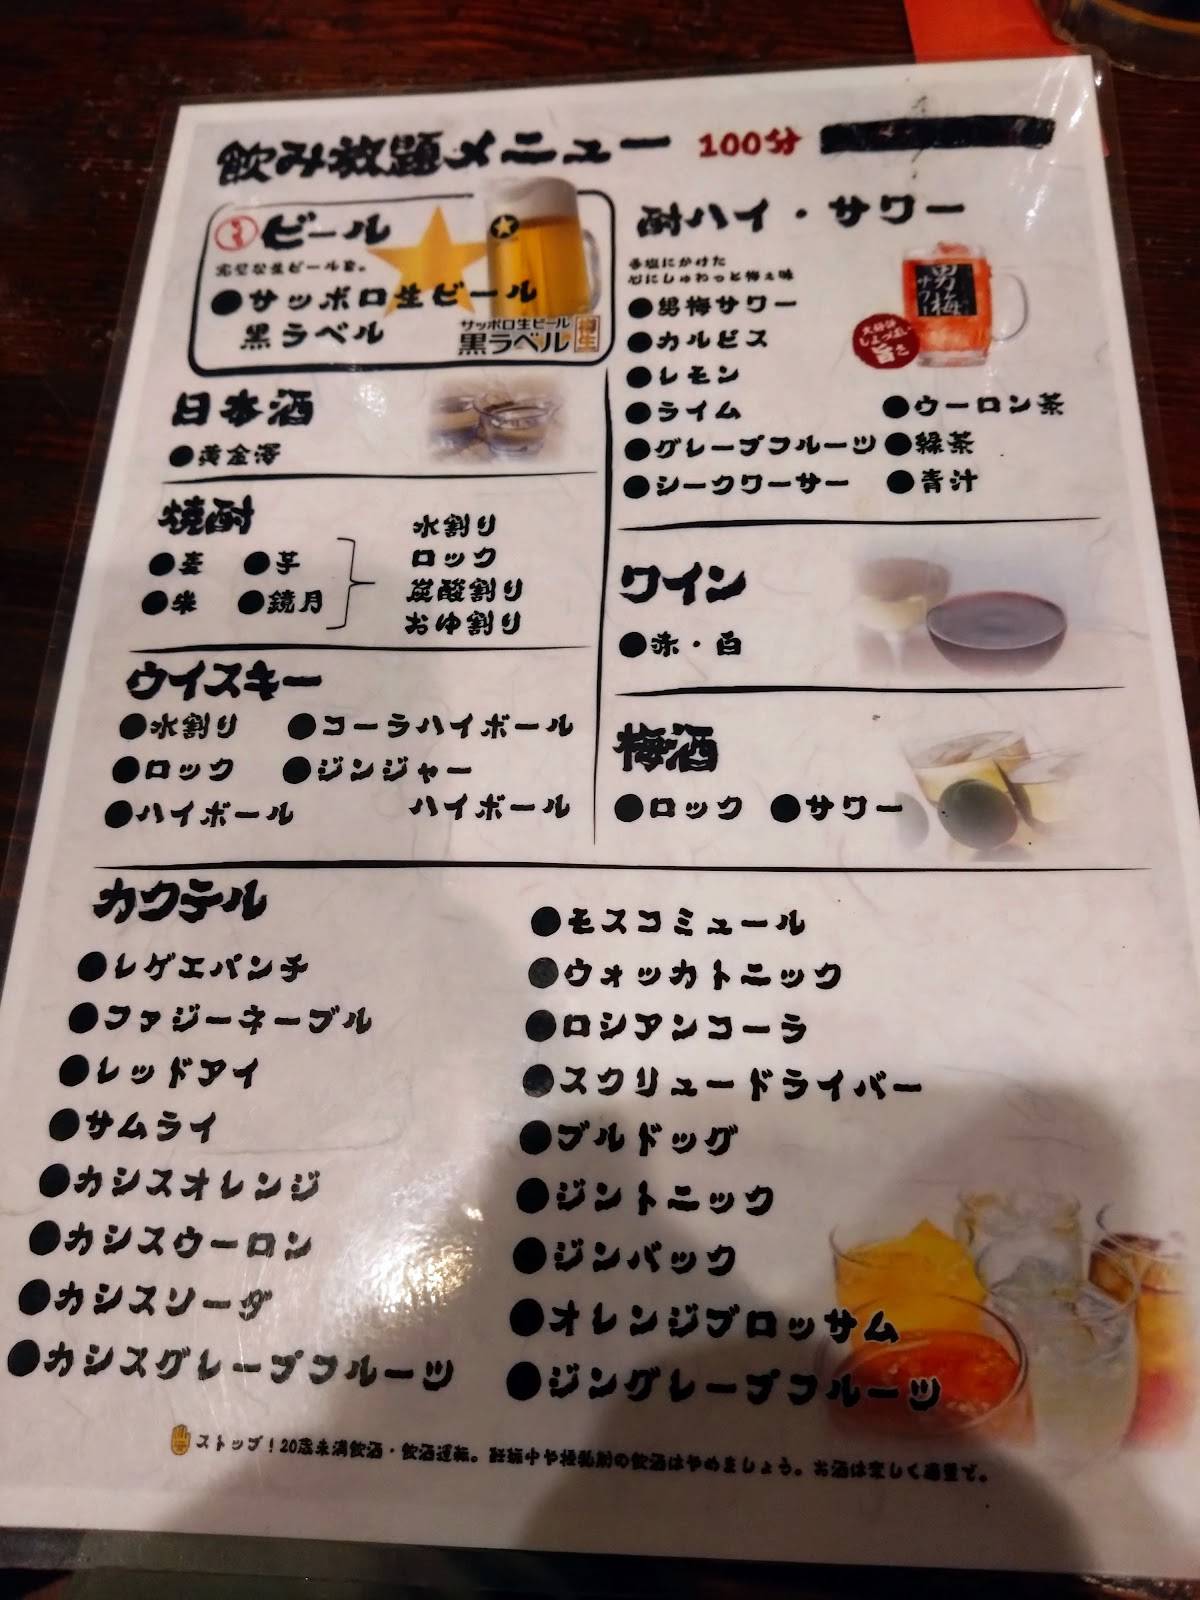 飲み放題メニュー 100分
生 ビール
完璧な生ビールを。
●サッポロ生ビール
黒ラベル
サッポロ生ビール
黒ラベル 樽生
日本酒
●黄金澤
焼酎
●麦 ●芋
●米 ●鏡月
水割り
ロック
炭酸割り
おゆ割り
ウイスキー
●水割り ●コーラハイボール
●ロック ●ジンジャー
●ハイボール ハイボール
酎ハイ・サワー
手塩にかけた
心にしゅわっと梅ぇ味
●男梅サワー
●カルピス
●レモン
●ライム ●ウーロン茶
●グレープフルーツ ●緑茶
●シークワーサー ●青汁
男梅
サワー
旨さ
ワイン
●赤・白
梅酒
●ロック ●サワー
カクテル
●レゲエパンチ
●ファジーネーブル
●レッドアイ
●サムライ
●カシスオレンジ
●カシスウーロン
●カシスソーダ
●カシスグレープフルーツ
●モスコミュール
●ウォッカトニック
●ロシアンコーラ
●スクリュードライバー
●ブルドッグ
●ジントニック
●ジンバック
●オレンジブロッサム
●ジングレープフルーツ
ストップ！20歳未満飲酒・飲酒運転。妊娠中や授乳期の飲酒はやめましょう。お酒は楽しく適量で。